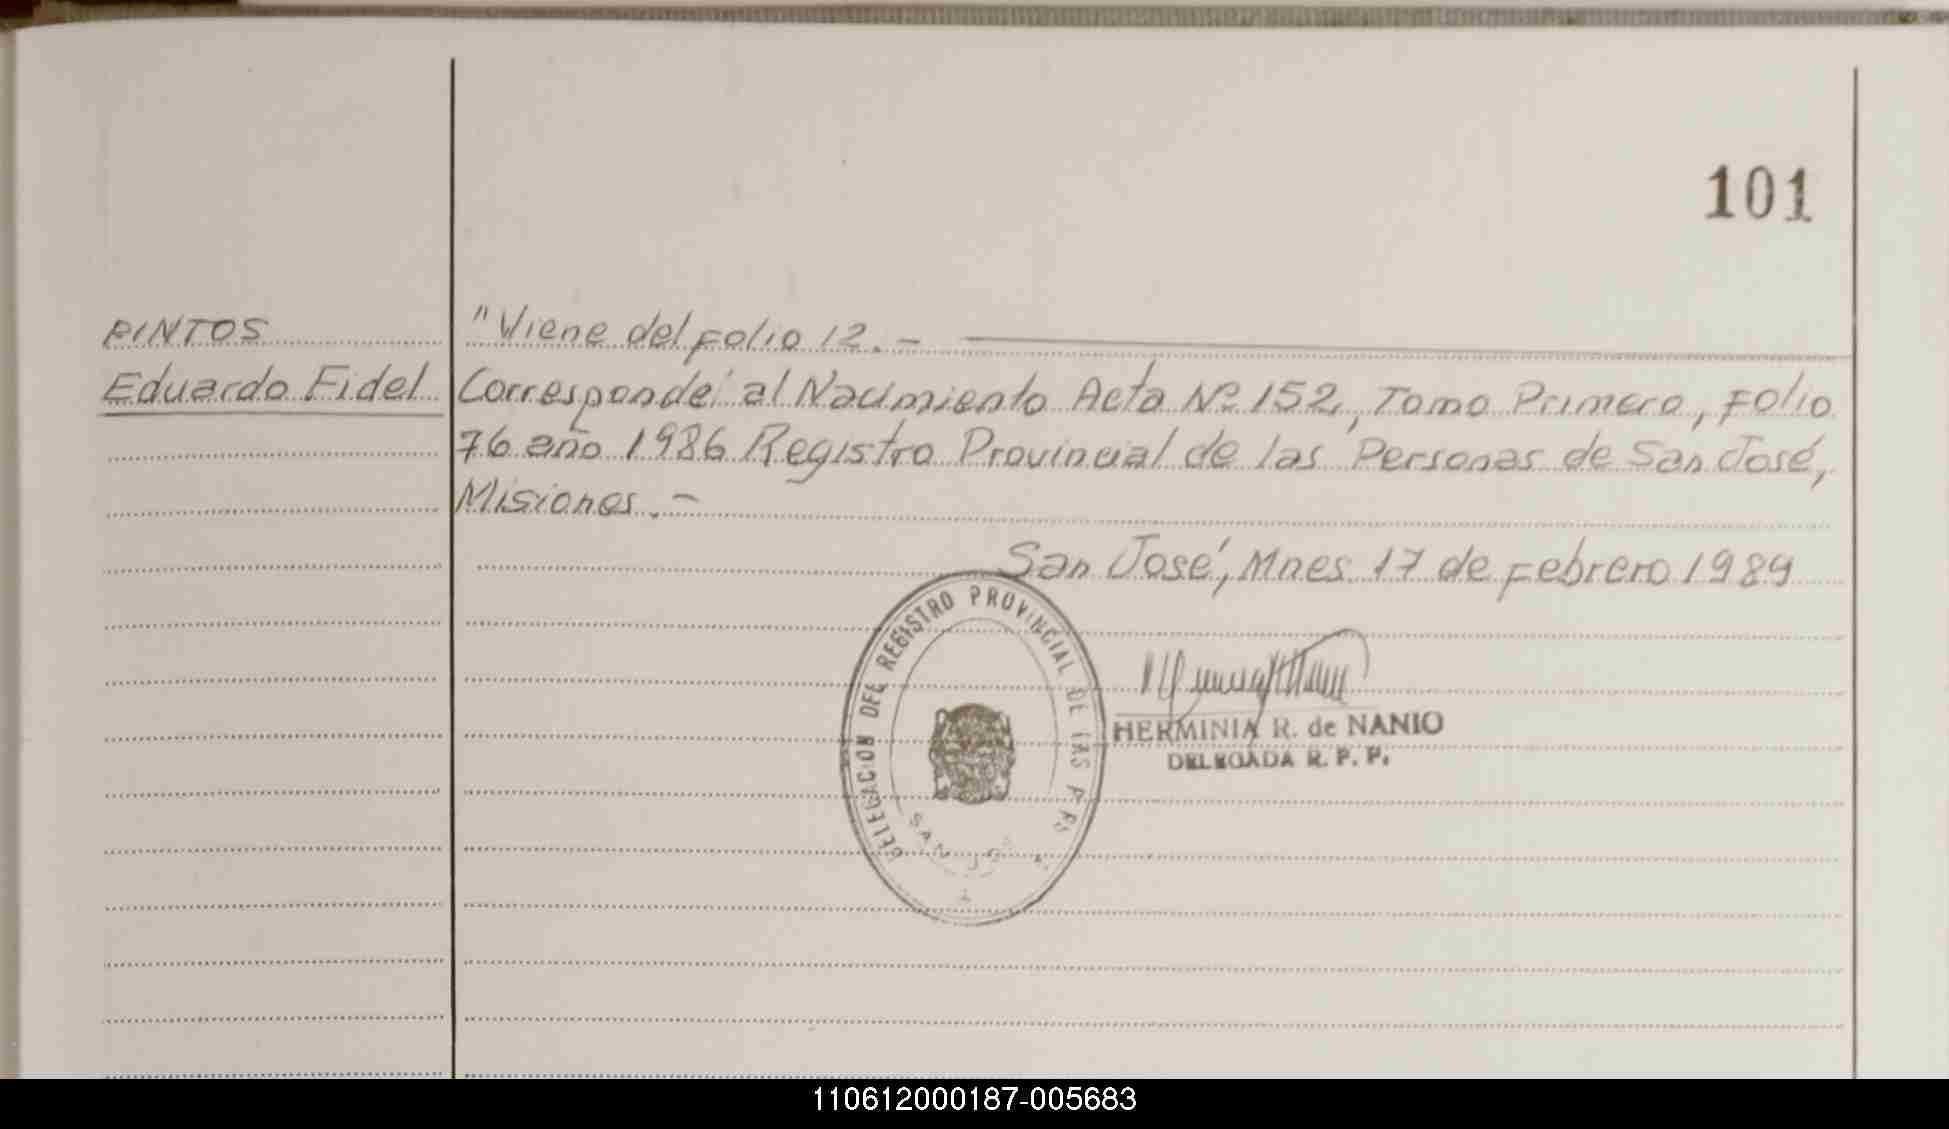 101
PINTOS
Eduardo Fidel
"Viene del Folio 12.-
Corresponde al Nacimiento Acta Nº 152, Tomo Primero, Folio
76 año 1986 Registro Provincial de las Personas de San José,
Misiones.-
San José, Mnes 17 de Febrero 1989
DELEGACION DEL REGISTRO PROVINCIAL DE LAS P.P.
SAN JOSÉ
HERMINIA R. de NANIO
DELEGADA R. P. P.
110612000187-005683